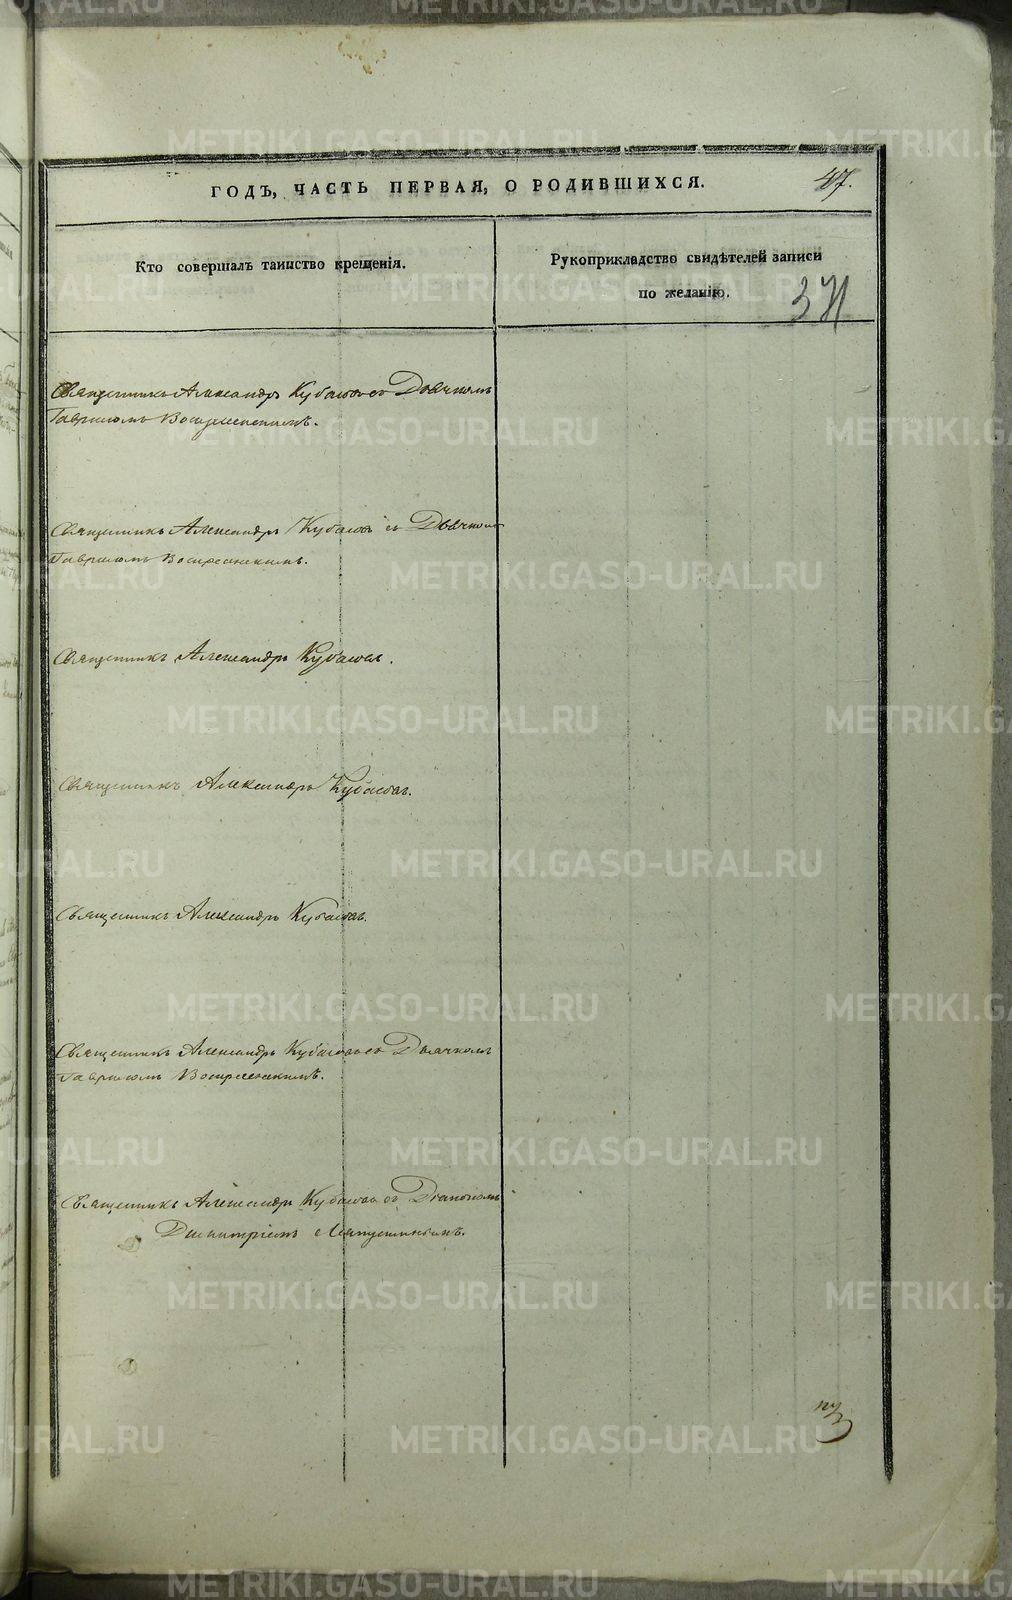 ГОДЪ, ЧАСТЬ ПЕРВАЯ, О РОДИВШИХСЯ.
47.
Кто совершалъ таинство крещенія.
Рукоприкладство свидѣтелей записи
по желанію.
371
Священникъ Александръ Кубасовъ съ Дьячкомъ
Гавриломъ Воскресенскимъ.
Священникъ Александръ Кубасовъ съ Дьячкомъ
Гавриломъ Воскресенскимъ.
Священникъ Александръ Кубасовъ.
Священникъ Александръ Кубасовъ.
Священникъ Александръ Кубасовъ.
Священникъ Александръ Кубасовъ съ Дьячкомъ
Гавриломъ Воскресенскимъ.
Священникъ Александръ Кубасовъ съ Діакономъ
Димитріемъ Ляпустинымъ.
METRIKI.GASO-URAL.RU